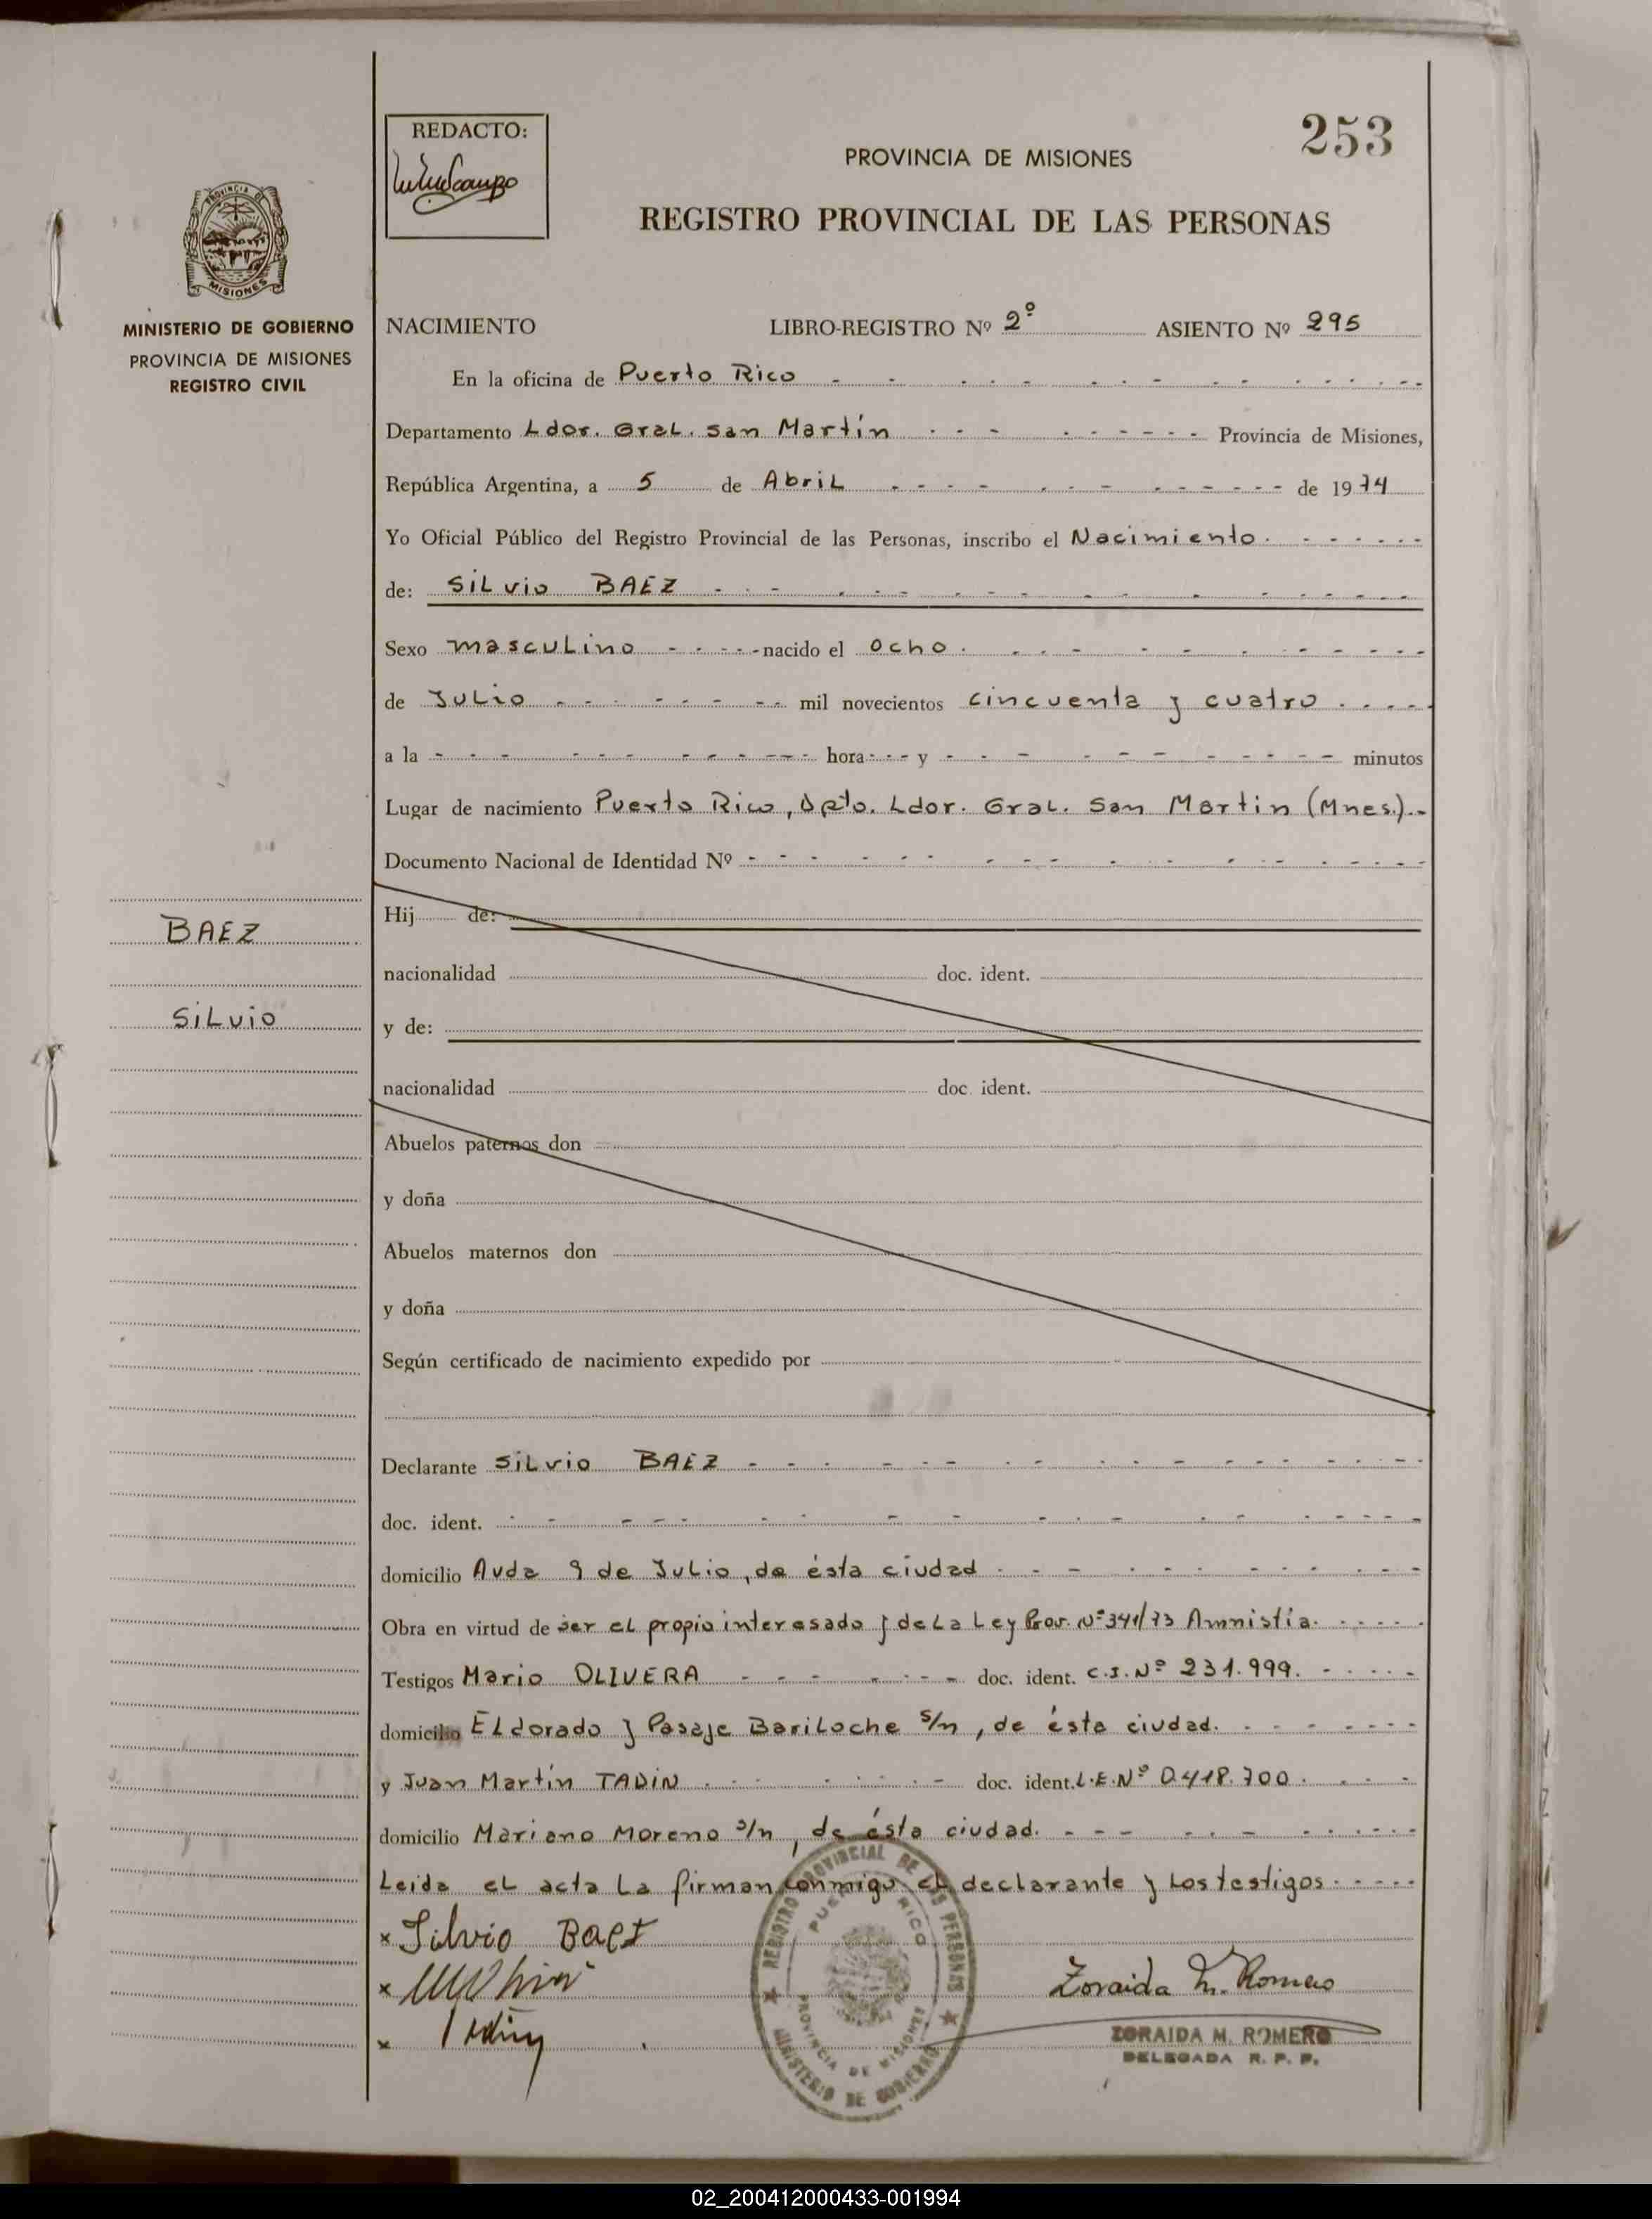 REDACTO:
253
PROVINCIA DE MISIONES
REGISTRO PROVINCIAL DE LAS PERSONAS
PROVINCIA DE
MISIONES
MINISTERIO DE GOBIERNO
PROVINCIA DE MISIONES
REGISTRO CIVIL
NACIMIENTO LIBRO-REGISTRO Nº 2º ASIENTO Nº 295
En la oficina de Puerto Rico
Departamento Ldor. Gral. San Martín Provincia de Misiones,
República Argentina, a 5 de Abril de 1974
Yo Oficial Público del Registro Provincial de las Personas, inscribo el Nacimiento
de: Silvio BAEZ
Sexo masculino nacido el ocho
de Julio mil novecientos cincuenta y cuatro
a la hora y minutos
Lugar de nacimiento Puerto Rico, Dpto. Ldor. Gral. San Martin (Mnes.).-
Documento Nacional de Identidad Nº
BAEZ
Silvio
Hij de:
nacionalidad doc. ident.
y de:
nacionalidad doc. ident.
Abuelos paternos don
y doña
Abuelos maternos don
y doña
Según certificado de nacimiento expedido por
Declarante Silvio BAEZ
doc. ident.
domicilio Avda 9 de Julio, de ésta ciudad
Obra en virtud de ser el propio interesado y de la Ley Prov. Nº 341/73 Amnistía.
Testigos Mario OLIVERA doc. ident. C.I. Nº 231.999.
domicilio Eldorado y Pasaje Bariloche s/n, de ésta ciudad.
y Juan Martín TADIN doc. ident. L.E. Nº 0.418.700.
domicilio Mariano Moreno s/n, de ésta ciudad.
Leida el acta la firman conmigo el declarante y los testigos
x Silvio Baez
x
x
REGISTRO PROVINCIAL DE LAS PERSONAS
PUERTO RICO
PROVINCIA DE MISIONES
MINISTERIO DE GOBIERNO
Zoraida M. Romero
ZORAIDA M. ROMERO
DELEGADA R. P. P.
02_200412000433-001994